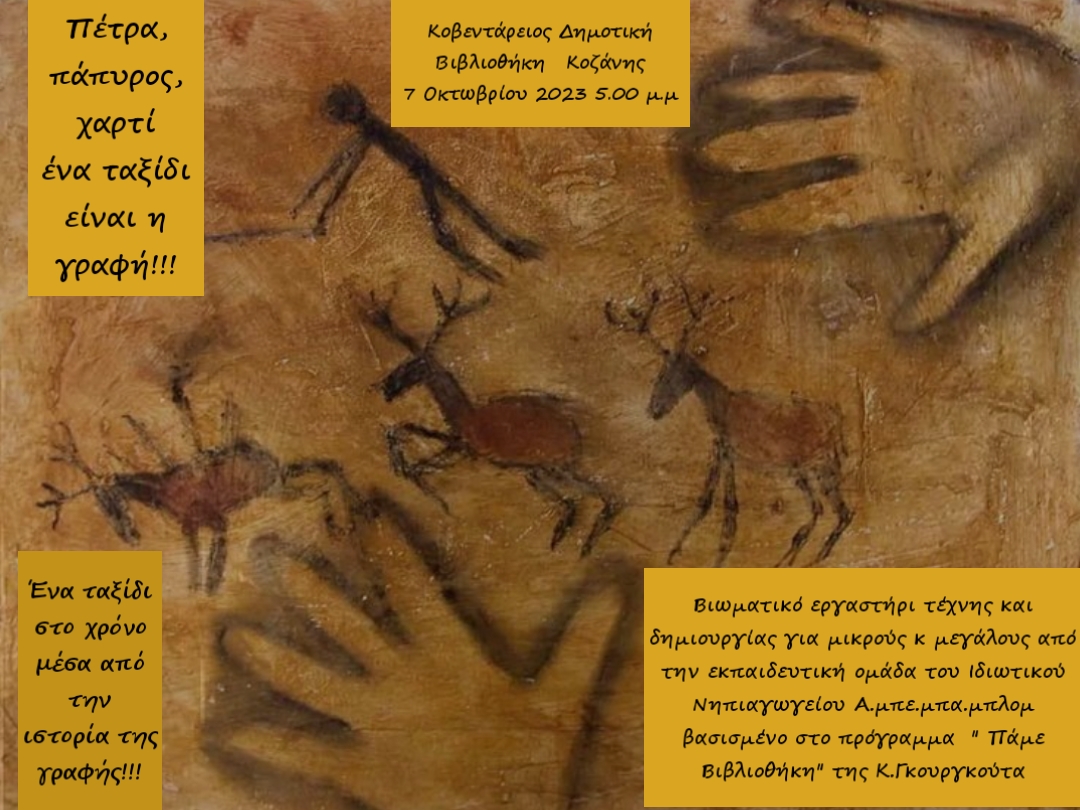 Πέτρα,
πάπυρος,
χαρτί
ένα ταξίδι
είναι η
γραφή!!!
Κοβεντάρειος Δημοτική
Βιβλιοθήκη Κοζάνης
7 Οκτωβρίου 2023 5.00 μ.μ
Ένα ταξίδι
στο χρόνο
μέσα από
την
ιστορία της
γραφής!!!
Βιωματικό εργαστήρι τέχνης και
δημιουργίας για μικρούς κ μεγάλους από
την εκπαιδευτική ομάδα του Ιδιωτικού
Νηπιαγωγείου Α.μπε.μπα.μπλομ
βασισμένο στο πρόγραμμα " Πάμε
Βιβλιοθήκη" της Κ.Γκουργκούτα